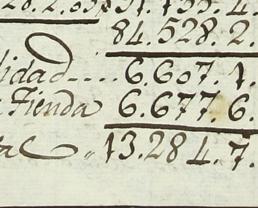 84.528.2.
idad.... 6.607.1.
Tienda 6.677.6.
tal.. 13.284.7.